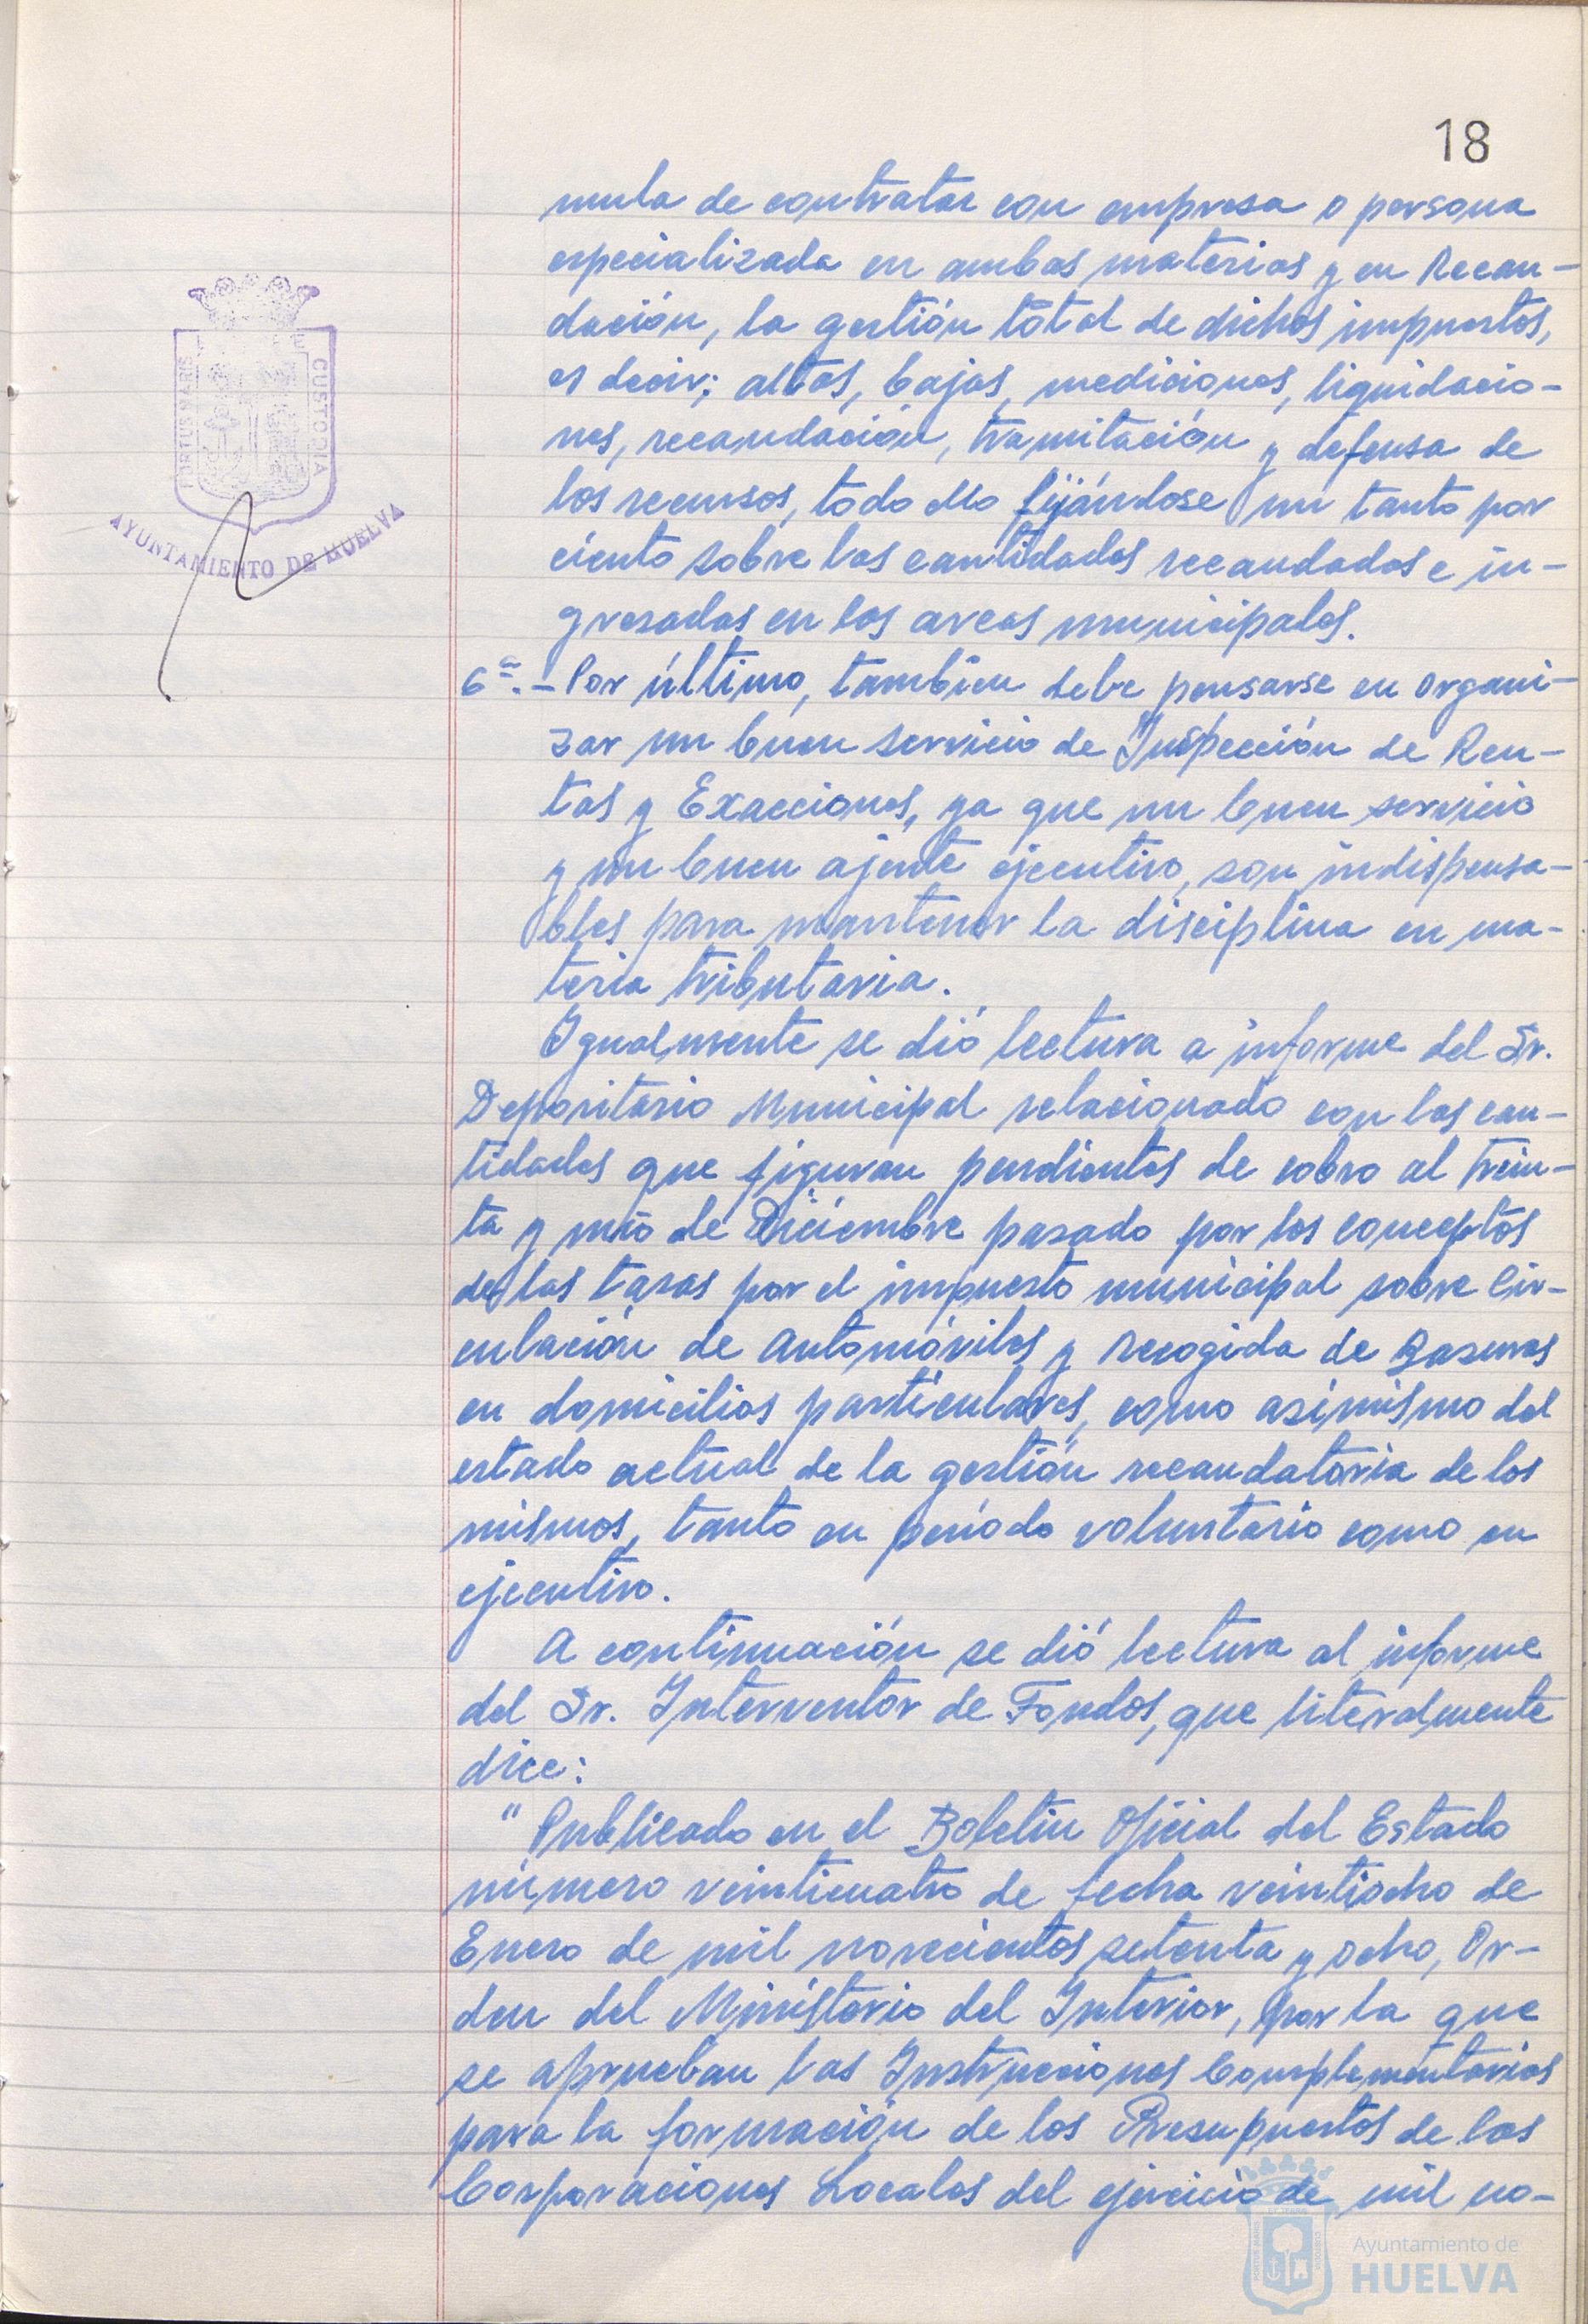 18
mula de contratar con empresa o persona
especializada en ambas materias y en Recau-
dación, la gestión total de dichos impuestos,
es decir; altas, bajas, mediciones, liquidacio-
nes, recaudación, tramitación y defensa de
los recursos, todo ello fijándose un tanto por
ciento sobre las cantidades recaudadas e in-
gresadas en las arcas municipales.
6ª.- Por último, también debe pensarse en organi-
zar un buen servicio de Inspección de Ren-
tas y Exacciones, ya que un buen servicio
y un buen ajente ejecutivo, son indispensa-
bles para mantener la disciplina en ma-
teria tributaria.
Igualmente se dió lectura a informe del Sr.
Depositario Municipal relacionado con las can-
tidades que figuran pendientes de cobro al trein-
ta y uno de Diciembre pasado por los conceptos
de las tasas por el impuesto municipal sobre Cir-
culación de Automóviles y Recogida de Basuras
en domicilios particulares, como asimismo del
estado actual de la gestión recaudatoria de los
mismos, tanto en período voluntario como en
ejecutivo.
A continuación se dió lectura al informe
del Sr. Interventor de Fondos, que literalmente
dice:
" Publicado en el Boletin Oficial del Estado
número veinticuatro de fecha veintiocho de
Enero de mil novecientos setenta y ocho, Or-
den del Ministerio del Interior, por la que
se aprueban las Instrucciones Complementarias
para la formación de los Presupuestos de las
Corporaciones Locales del ejercicio de mil no-
PORTUS MARIS
CUSTODIA
AYUNTAMIENTO DE HUELVA
Ayuntamiento de
HUELVA